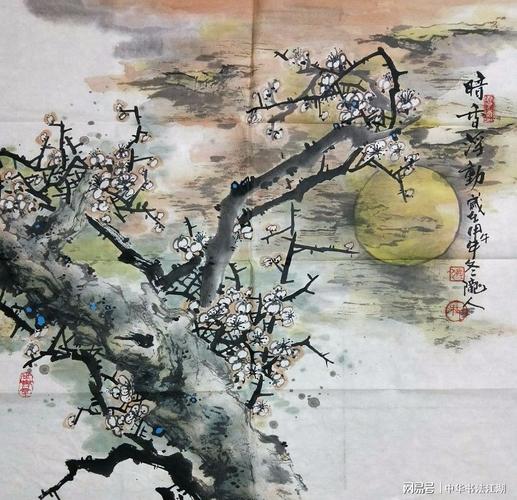 暗香浮動
歲在甲申年冬 人
网易号 | 中华书法江湖